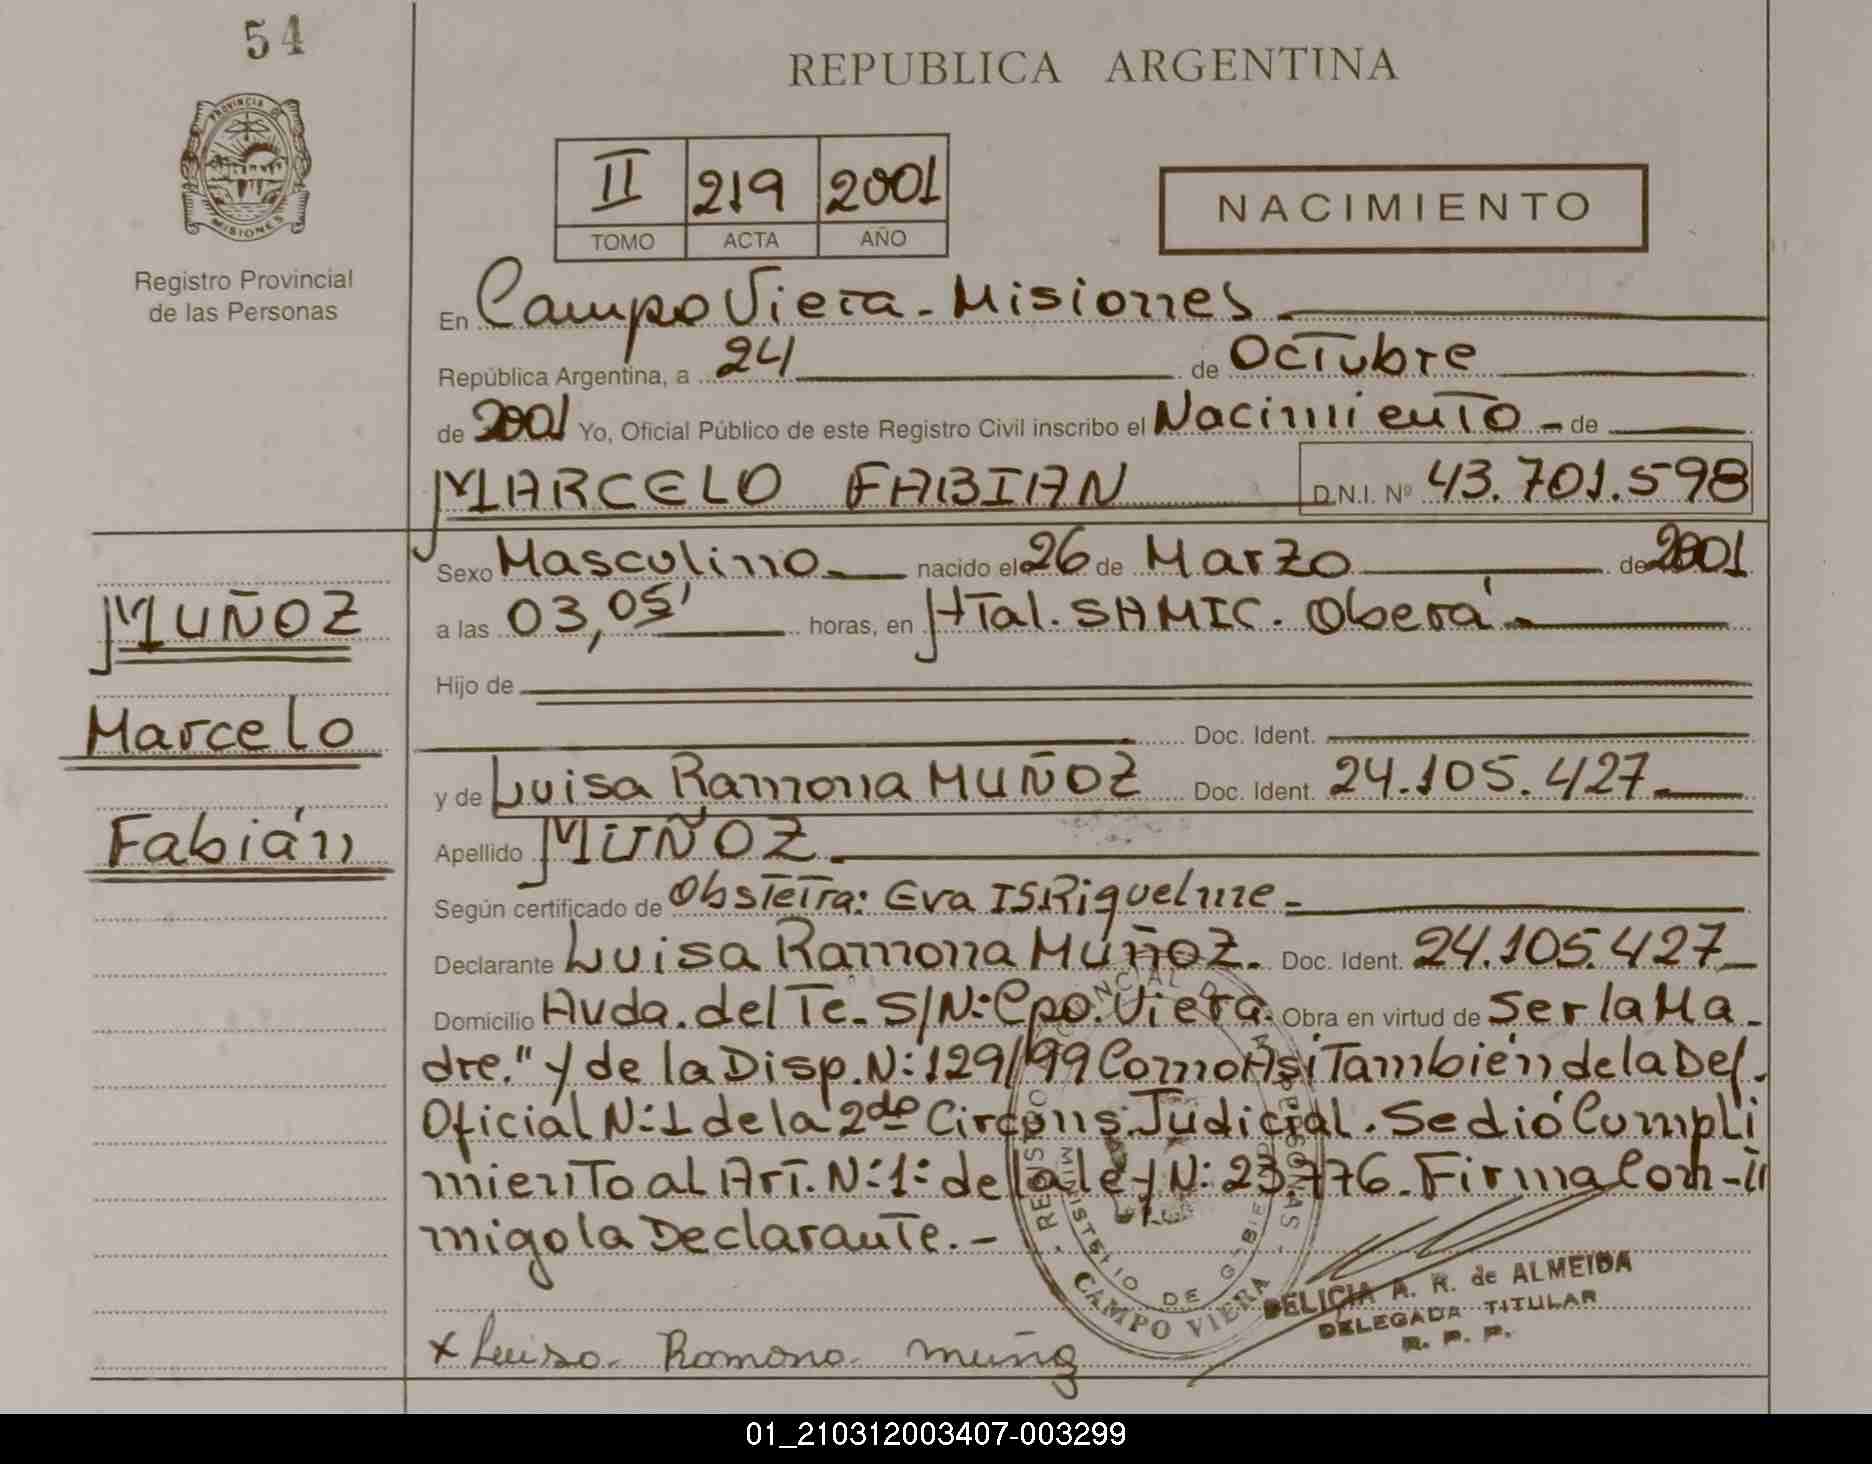 54
REPUBLICA ARGENTINA
PROVINCIA DE
MISIONES
Registro Provincial
de las Personas
II 219 2001
TOMO ACTA AÑO
NACIMIENTO
En Campo Viera - Misiones
República Argentina, a 24 de Octubre
de 2001 Yo, Oficial Público de este Registro Civil inscribo el Nacimiento - de
MARCELO FABIAN D.N.I. Nº 43.701.598
MUÑOZ
Marcelo
Fabián
Sexo Masculino nacido el 26 de Marzo de 2001
a las 03,05' horas, en Htal. SAMIC. Oberá.
Hijo de
Doc. Ident.
y de Luisa Ramona MUÑOZ Doc. Ident. 24.105.427.
Apellido MUÑOZ.
Según certificado de Obstetra: Eva IS. Riquelme -
Declarante Luisa Ramona MUÑOZ. Doc. Ident. 24.105.427
Domicilio Avda. del Te. S/N: Cpo. Viera. Obra en virtud de Ser la Ma-
dre." y de la Disp. N: 129/99 Como Así También de la Def.
Oficial N: 1 de la 2do Circuns. Judicial. Se dió Cumpli
miento al Art. N: 1: de la ley N: 23.776. Firma Con-
migo la Declarante. -
MINISTERIO DE
CAMPO VIERA
DELICIA A. R. de ALMEIDA
DELEGADA TITULAR
R. P. P.
x Luisa Ramona Muñoz
01_210312003407-003299